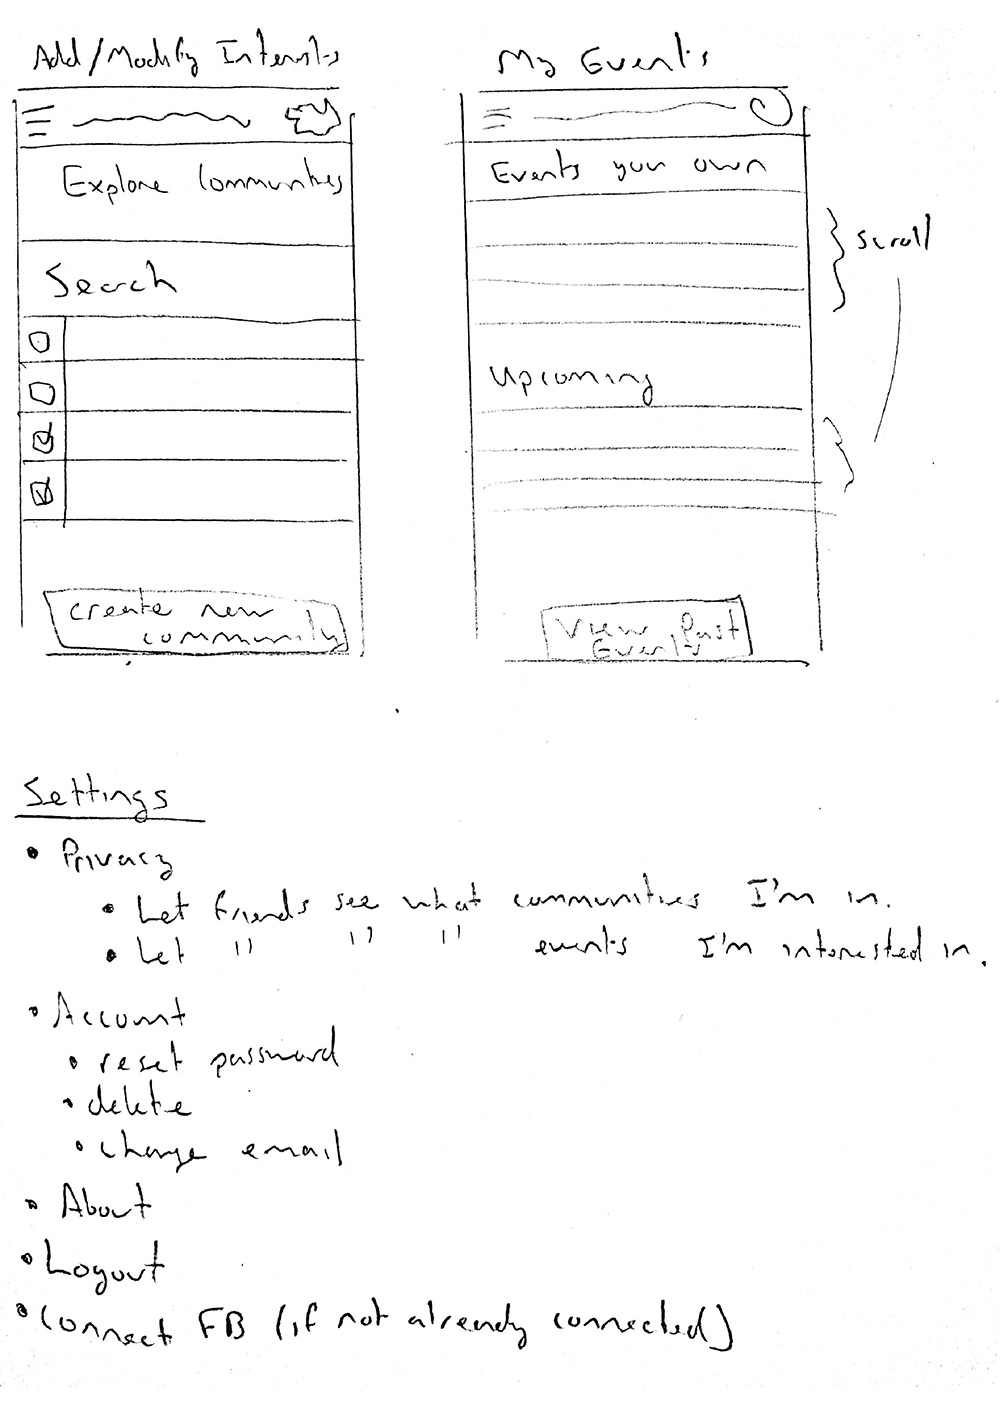 Add/Modify Interests
Explore Communities
Search
create new
community
My Events
Events you own
scroll
Upcoming
View Past
Events
Settings
• Privacy
• Let friends see what communities I'm in.
• Let " " " events I'm interested in.
• Account
• reset password
• delete
• change email
• About
• Logout
• Connect FB (if not already connected)